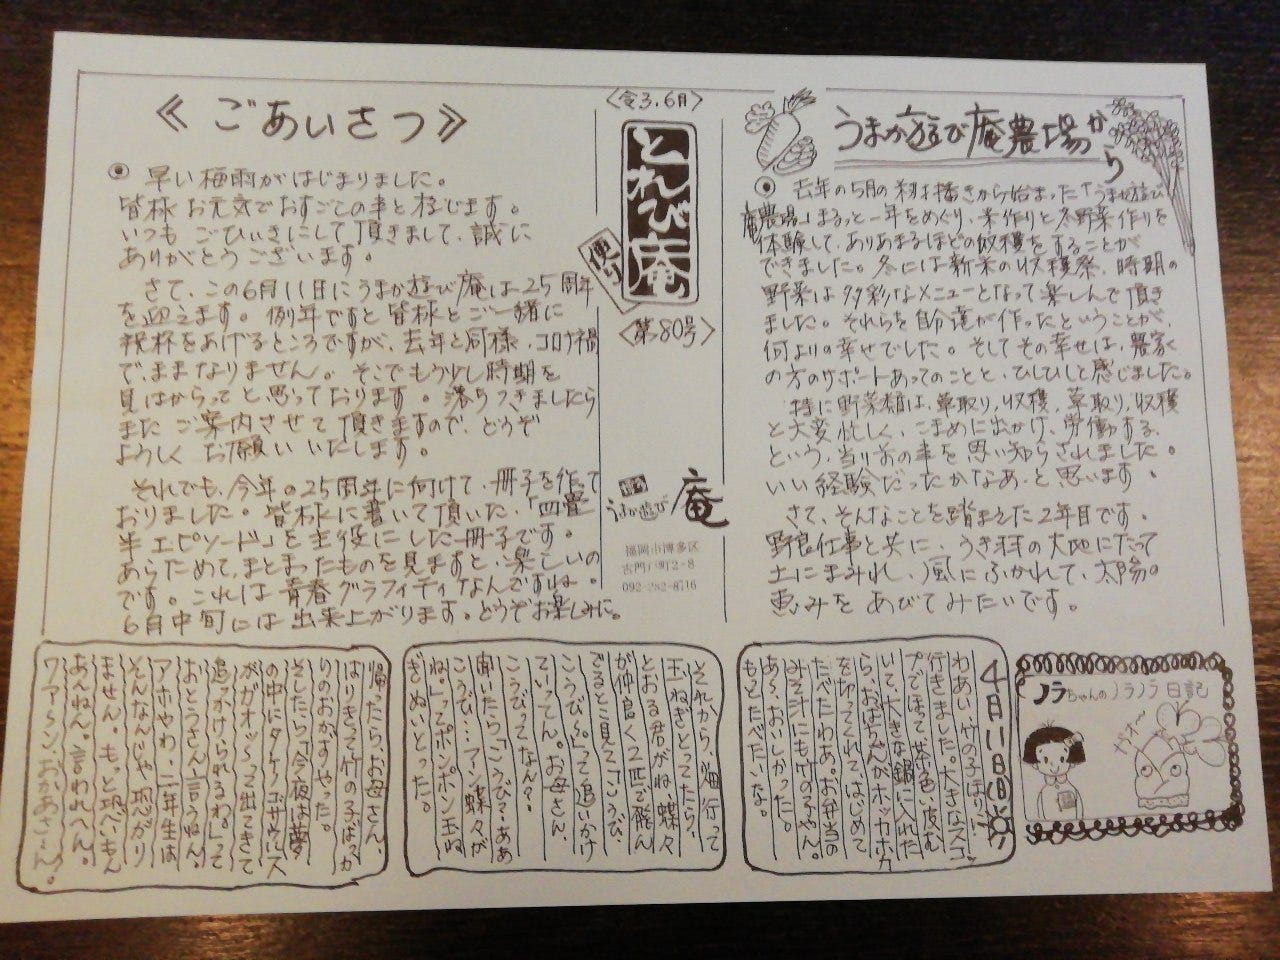 《ごあいさつ》
早い梅雨がはじまりました。
皆様お元気でおすごしの事と存じます。
いつもごひいきにして頂きまして、誠に
ありがとうございます。
さて、この6月11日にうまか遊び庵は25周年
を迎えます。例年ですと皆様とご一緒に
祝杯をあげるところですが、去年と同様、コロナ禍
で、ままなりません。そこでもう少し時期を
見はからってと思っております。落ちつきましたら
またご案内させて頂きますので、どうぞ
よろしくお願いいたします。
それでも、今年の25周年に向けて、冊子を作って
おりました。皆様に書いて頂いた、「四畳
半エピソード」を主役にした冊子です。
あらためて、まとまったものを見ますと、楽しいの
です。これは青春グラフィティなんですね。
6月中旬には出来上がります。どうぞお楽しみに。
〈令3.6月〉
とれび庵
便り
〈第80号〉
うまか遊び庵
福岡市博多区
古門戸町2-8
092-282-8716
うまか遊び庵農場から
去年の5月の籾播きから始まった「うまか遊び
庵農場」まるっと一年をめぐり、米作りと冬野菜作りを
体験して、ありあまるほどの収穫をすることが
できました。冬には新米の収穫祭、時期の
野菜は多彩なメニューとなって楽しんで頂き
ました。それらを自分達が作ったということが、
何よりの幸せでした。そしてその幸せは、農家
の方のサポートあってのことと、ひしひしと感じました。
特に野菜類は、草取り、収穫、草取り、収穫
と大変忙しく、こまめに出かけ、労働する、
という、当り前の事を思い知らされました。
いい経験だったかなあ、と思います。
さて、そんなことを踏まえた2年目です。
野良仕事と共に、うき羽の大地にたって
土にまみれ、風にふかれて、太陽の
恵みをあびてみたいです。
ノラちゃんのノラノラ日記
ガオー
4月11日(日)
わあい、竹の子ほりに
行きました。大きなスコッ
プでほって、茶色い皮む
いて、大きな鍋に入れた
ら、おばちゃんがホッカホカ
を切ってくれて、はじめて
たべたわあ。お弁当の
みそ汁にも竹の子やん。
あ〜、おいしかった。
もっとたべたいな。
それから、畑行って
玉ねぎとってたら、
とおる君がね、蝶々
が仲良く2匹で飛ん
でるとこ見て「こうび、
こうび〜」って追いかけ
ていってん。お母さん、
こうびってなんな?
聞いたら「こうび?ああ
こうび…アン蝶々が
ね」ってポンポン玉ね
ぎぎぬいとった。
帰ったら、お母さん、
はりきって竹の子ばっか
りのおかずやった。
そしたら「今夜は夢
の中にタケノコザウルス
がガオッ〜って出てきて
追っかけられるわ。」って
おとうさん、言うねん。
アホやわ、二年生は
そんなんじゃ恐がり
ません。もっと恐いもん
あんねん。言われへん。
ワァ〜ン、おかあさぁん!